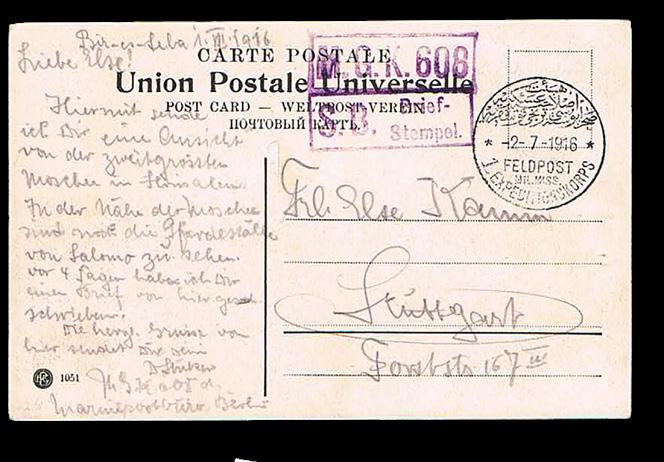 Bir-es-Seba 1.VII.1916
Liebe Else!
CARTE POSTALE
Union Postale Universelle
POST CARD — WELTPOST-VEREIN
ПОЧТОВЫЙ КАРТЪ.
M.G.K. 608
S.B. Brief-
Stempel.
Hiermit sende
ich Dir eine Ansicht
von der zweitgrössten
Moschee in
In der Nähe der Moschee
sind noch die Pferdeställe
von Salomo zu sehen.
vor 4 Tagen habe ich Dir
einen Brief von hier gesch
schrieben.
Die herzl. Grüsse von
hier sendet Dir Dein
M.G.K. 608
Marinepostbüro, Berlin
1051
* -2.-7.-1916 *
FELDPOST
MIL.MISS.
1. EXPEDITIONSKORPS
Frl. Else Kamm
Stuttgart
Forststr 167 III